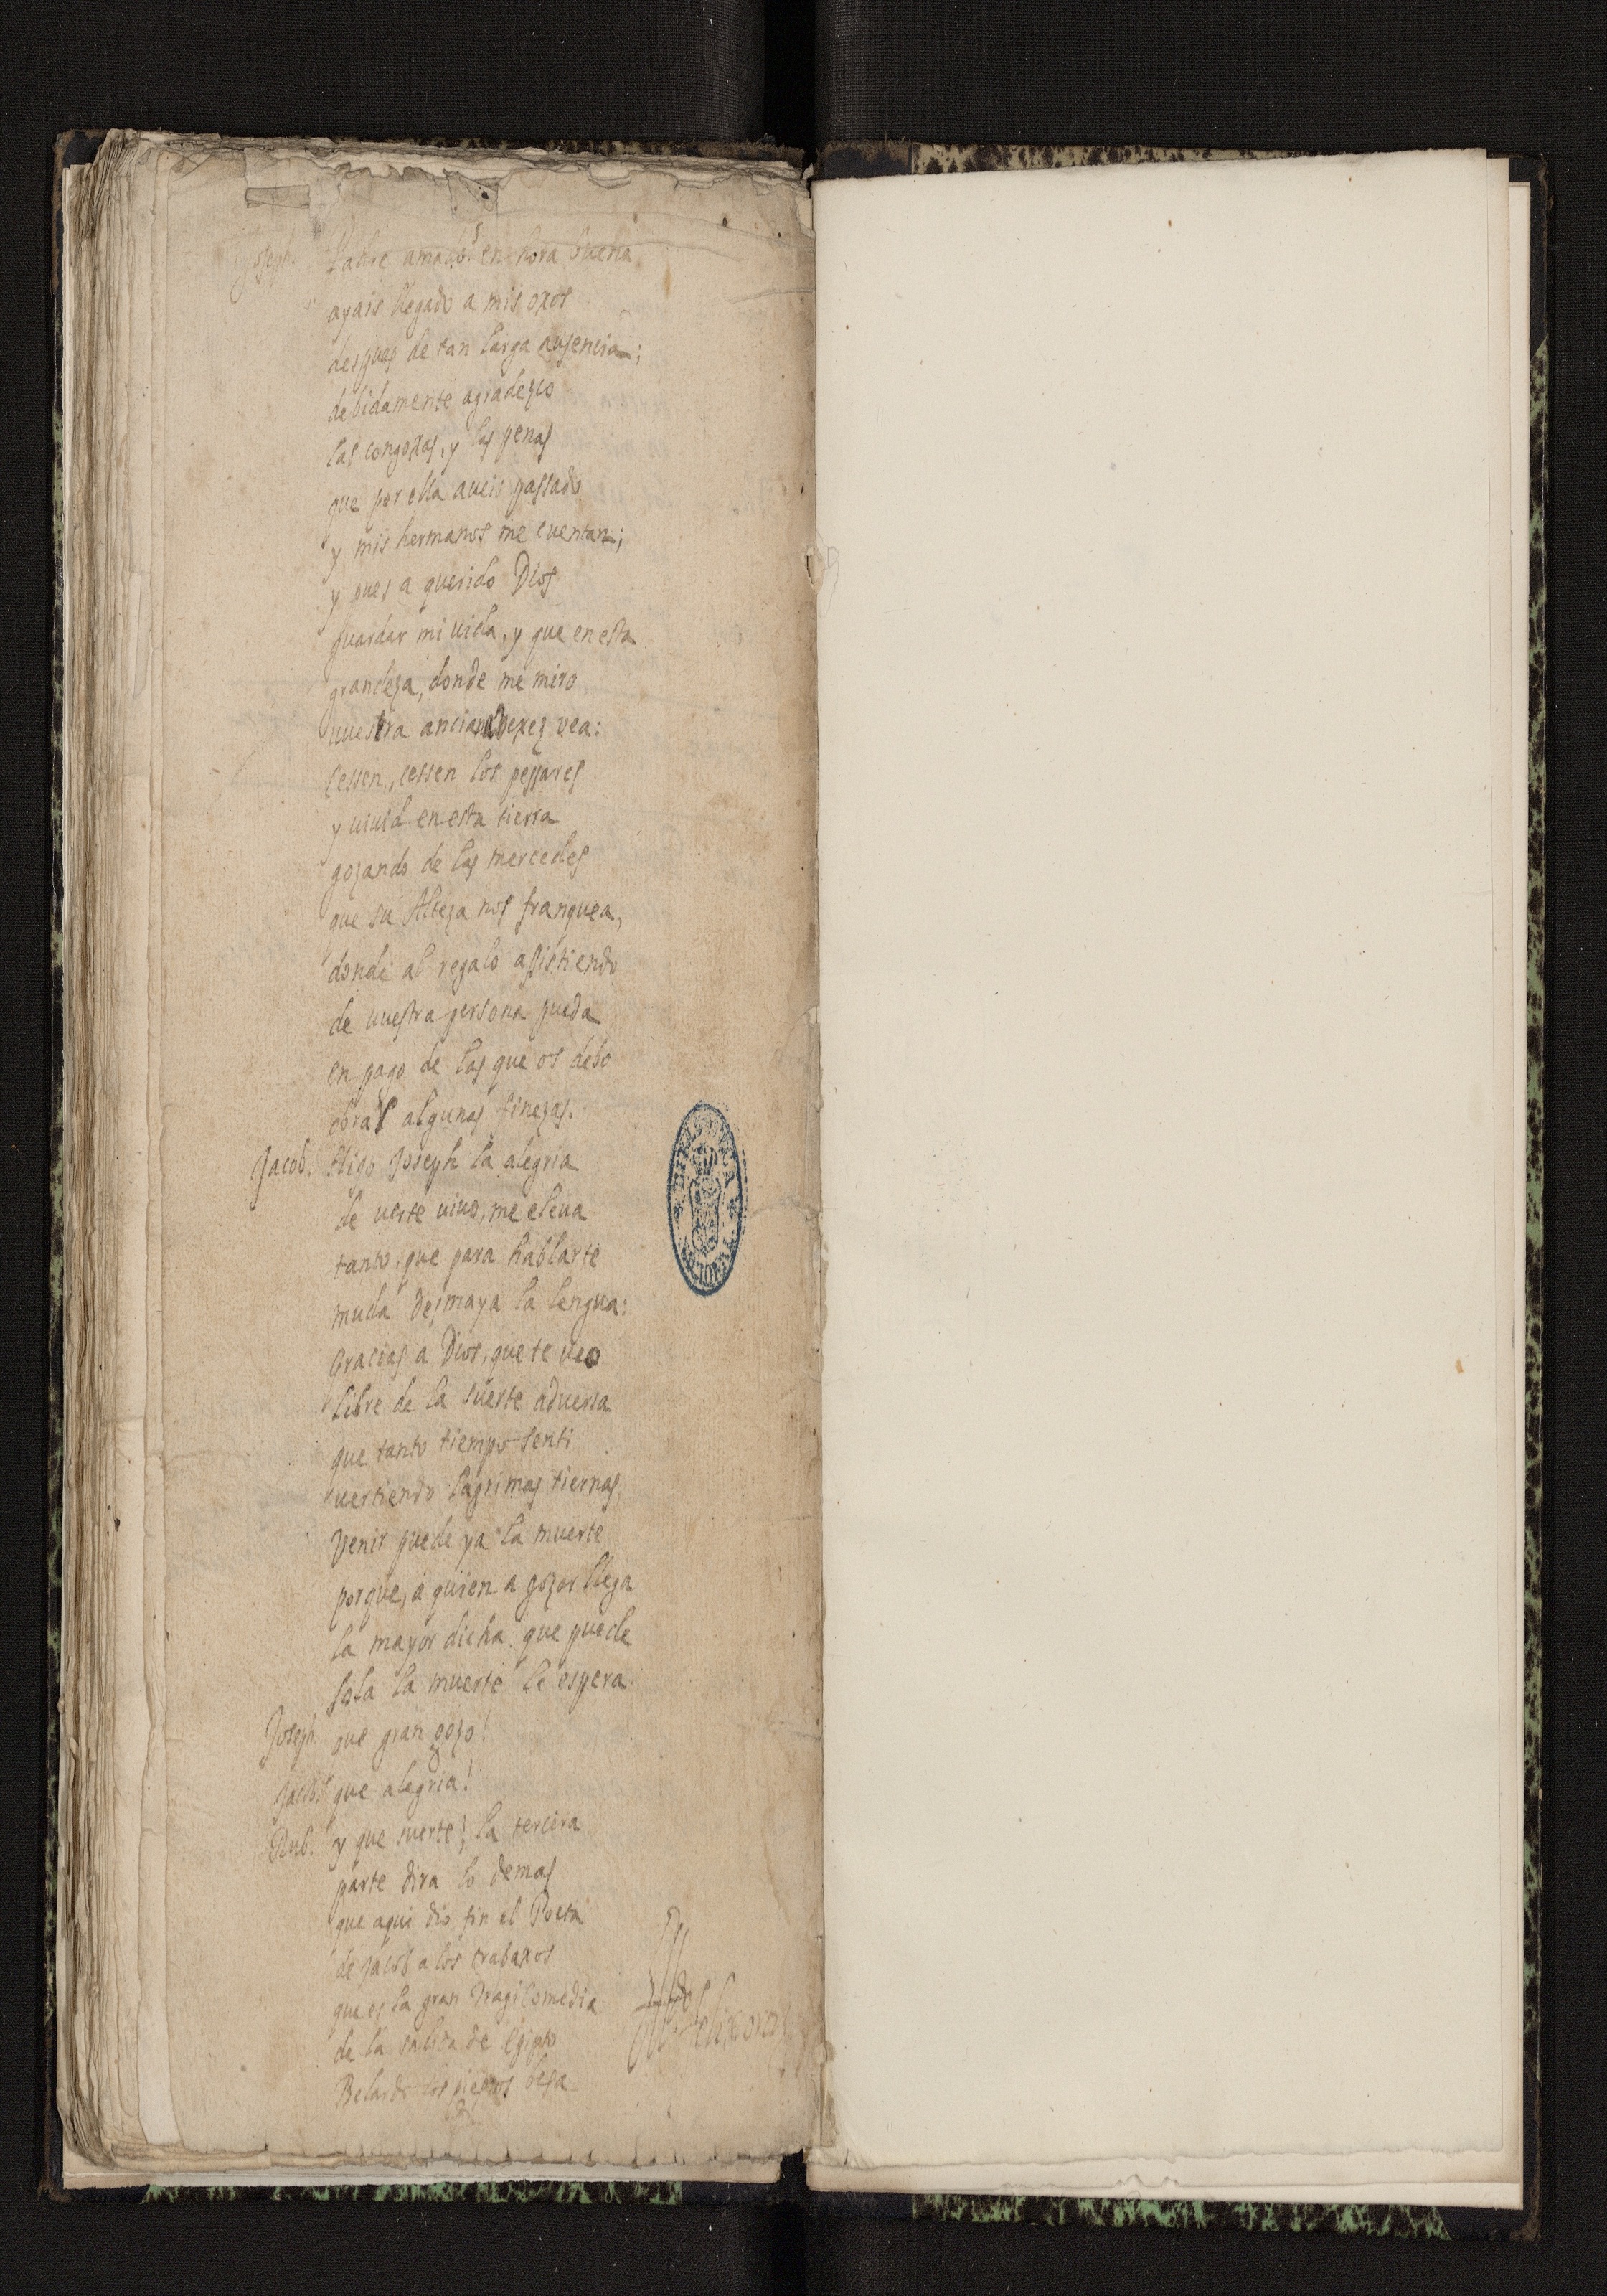 Joseph. Padre amado! en hora buena
ayais llegado a mis oxos
despues de tan larga ausencia;
debidamente agradezco
las congoxas, y las penas
que por ella aueis passado
y mis hermanos me cuentan;
y pues a querido Dios
guardar mi uida, y que en esta
grandeza, donde me miro
uuestra anciana vexez vea:
cessen, cessen los pessares
y uiuid en esta tierra
gozando de las mercedes
que su Alteza nos franquea,
donde al regalo assistiendo
de uuestra persona pueda
en pago de las que os debo
obrar algunas finezas.
Jacob. Hijo Joseph la alegria
de uerte uiuo, me eleua
tanto, que para hablarte
muda desmaya la lengua:
Gracias a Dios, que te veo
libre de la suerte aduersa
que tanto tiempo senti
uertiendo lagrimas tiernas,
Venir puede ya la muerte
porque, a quien a gozar llega
la mayor dicha que puede
sola la muerte le espera.
Joseph. que gran gozo!
Jacob. que alegria!
Rub. y que suerte! la tercera
parte dira lo demas
que aqui dio fin el Poeta
de Jacob a los trabaxos
que es la gran Tragicomedia
de la salida de Egipto
Belardo los pies os besa
BIBLIOTECA NACIONAL